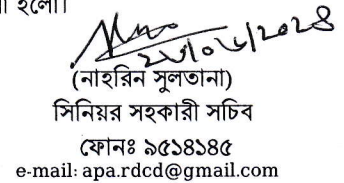 হলো।
(নাহরিন সুলতানা)
সিনিয়র সহকারী সচিব
ফোনঃ ৯৫১৪১৪৫
e-mail: apa.rdcd@gmail.com